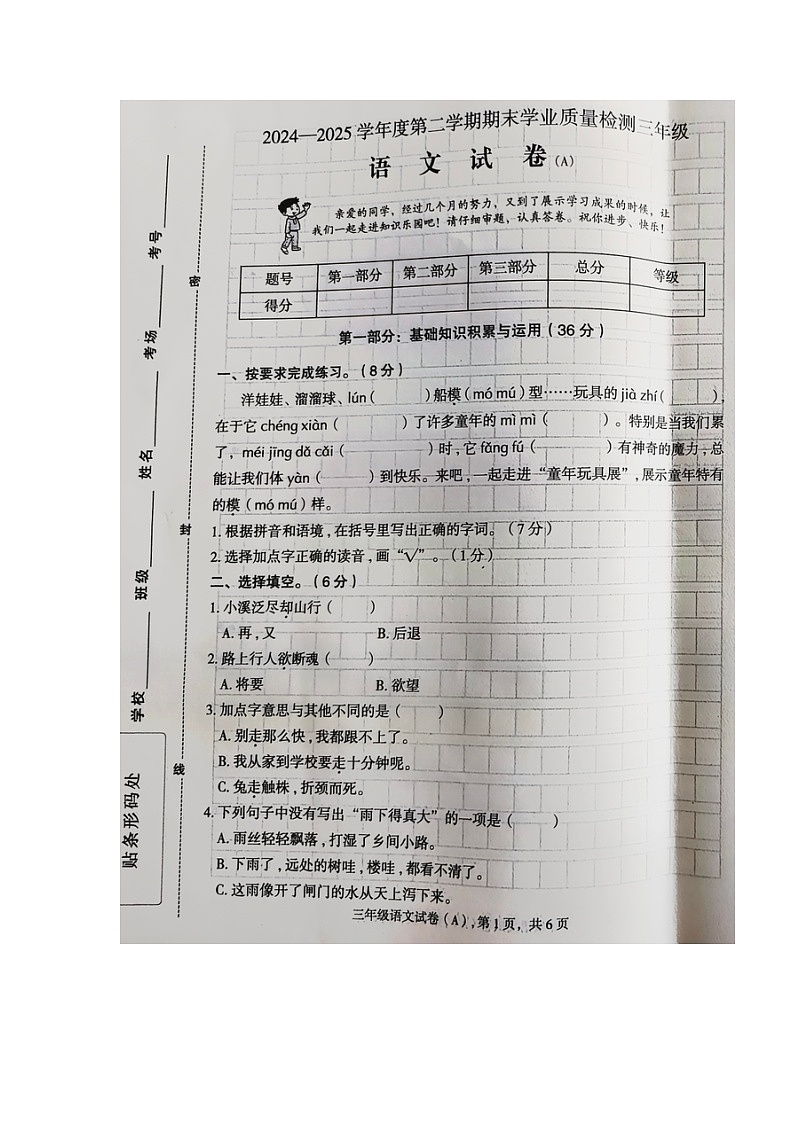 2024—2025学年度第二学期期末学业质量检测三年级
语 文 试 卷(A)
亲爱的同学，经过几个月的努力，又到了展示学习成果的时候，让
我们一起走进知识乐园吧！请仔细审题，认真答卷。祝你进步、快乐！
题号 第一部分 第二部分 第三部分 总分 等级
得分
第一部分：基础知识积累与运用(36分)
一、按要求完成练习。(8分)
洋娃娃、溜溜球、lún( )船模(mó mú)型……玩具的 jià zhí( ),
在于它 chéng xiàn( )了许多童年的 mì mì( )。特别是当我们累
了，méi jīng dǎ cǎi( )时,它 fǎng fú( )有神奇的魔力,总
能让我们体 yàn( )到快乐。来吧,一起走进“童年玩具展”,展示童年特有
的模(mó mú)样。
1. 根据拼音和语境,在括号里写出正确的字词。(7分)
2. 选择加点字正确的读音,画“√”。(1分)
二、选择填空。(6分)
1. 小溪泛尽却山行( )
A. 再,又 B. 后退
2. 路上行人欲断魂( )
A. 将要 B. 欲望
3. 加点字意思与其他不同的是( )
A. 别走那么快,我都跟不上了。
B. 我从家到学校要走十分钟呢。
C. 兔走触株,折颈而死。
4. 下列句子中没有写出“雨下得真大”的一项是( )
A. 雨丝轻轻飘落,打湿了乡间小路。
B. 下雨了,远处的树哇,楼哇,都看不清了。
C. 这雨像开了闸门的水从天上泻下来。
三年级语文试卷(A),第1页，共6页
学校
班级
姓名
考场
考号
密
封
线
贴条形码处